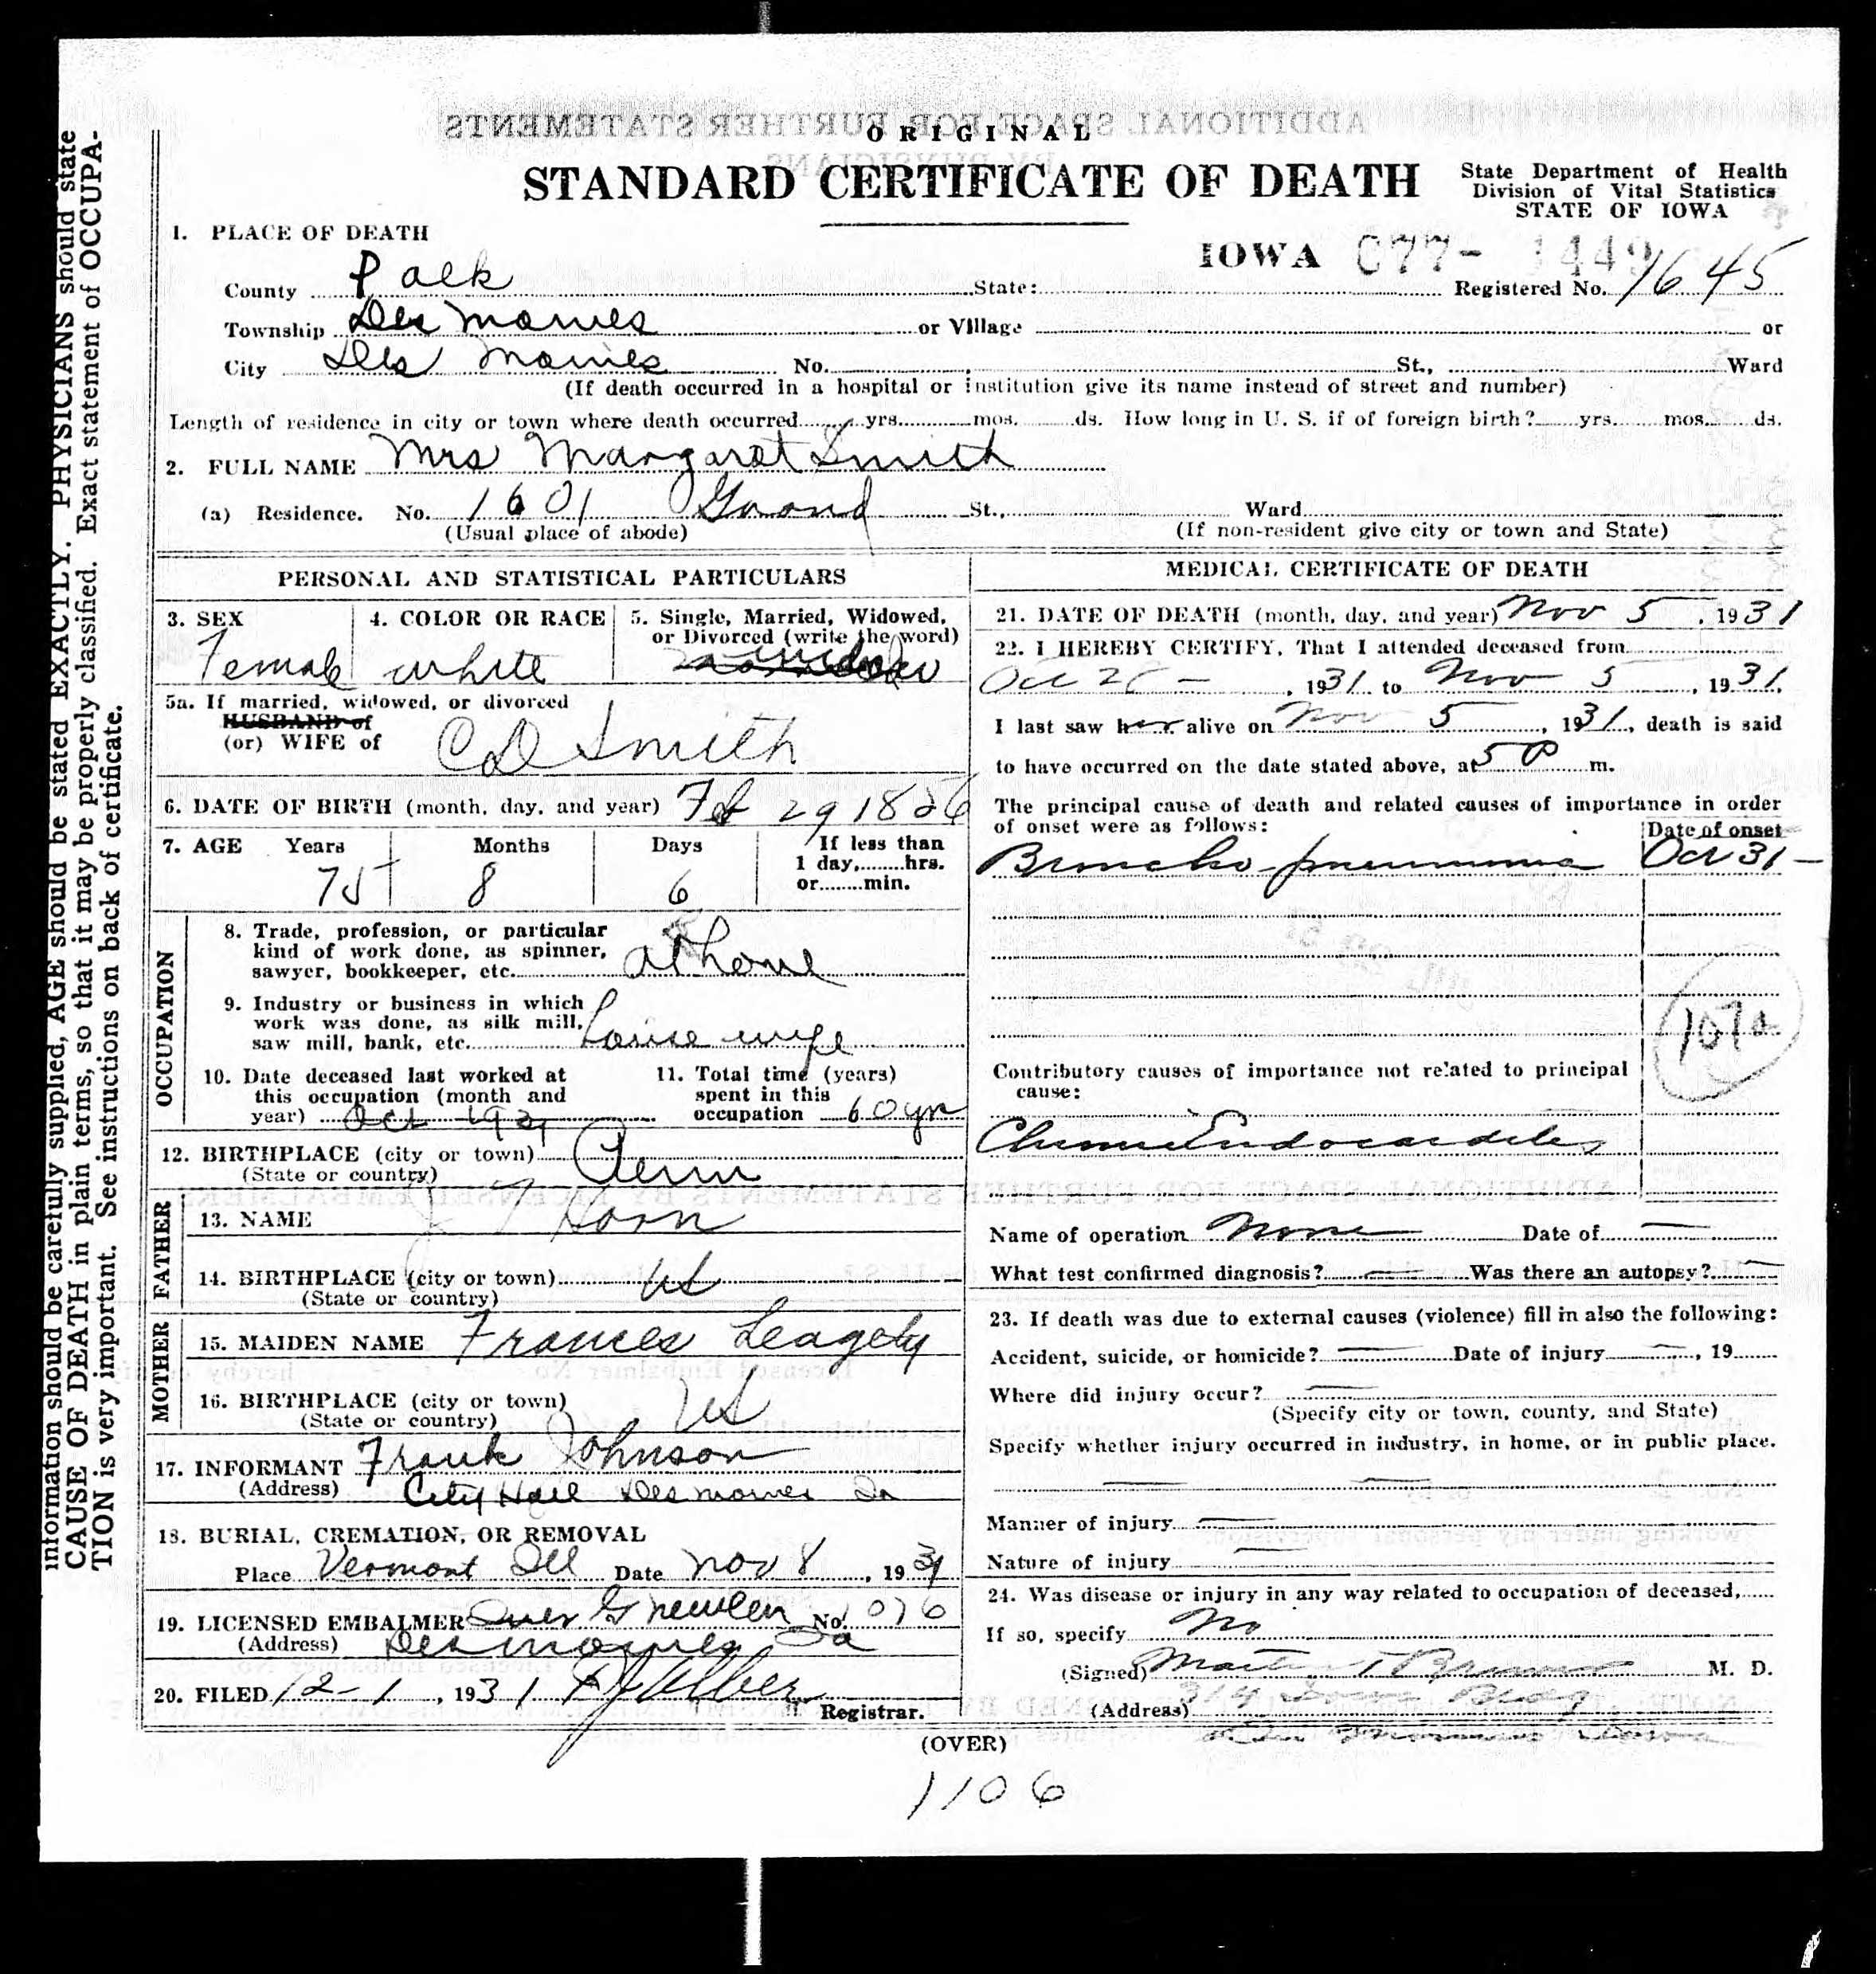 ORIGINAL
STANDARD CERTIFICATE OF DEATH
State Department of Health
Division of Vital Statistics
STATE OF IOWA
IOWA 077- 1449
1. PLACE OF DEATH
County Polk State: Registered No. 1645
Township Des Moines or Village or
City Des Moines No. St., Ward
(If death occurred in a hospital or institution give its name instead of street and number)
Length of residence in city or town where death occurred yrs. mos. ds. How long in U. S. if of foreign birth? yrs. mos. ds.
2. FULL NAME Mrs Margaret Smith
(a) Residence. No. 1601 Grand St., Ward
(Usual place of abode) (If non-resident give city or town and State)
PERSONAL AND STATISTICAL PARTICULARS
3. SEX 4. COLOR OR RACE 5. Single, Married, Widowed,
or Divorced (write the word)
Female white widow
5a. If married, widowed, or divorced
HUSBAND of
(or) WIFE of C D Smith
6. DATE OF BIRTH (month, day, and year) Feb 29 1856
7. AGE Years Months Days If less than
1 day, hrs.
or min.
75 8 6
OCCUPATION
8. Trade, profession, or particular
kind of work done, as spinner,
sawyer, bookkeeper, etc. at home
9. Industry or business in which
work was done, as silk mill,
saw mill, bank, etc. house wife
10. Date deceased last worked at
this occupation (month and
year) Oct 1931
11. Total time (years)
spent in this
occupation 60 yrs
12. BIRTHPLACE (city or town) Penn
(State or country)
FATHER
13. NAME J Horn
14. BIRTHPLACE (city or town) US
(State or country)
MOTHER
15. MAIDEN NAME Frances
16. BIRTHPLACE (city or town) US
(State or country)
17. INFORMANT Frank Johnson
(Address) City Hall Des Moines Ia
18. BURIAL, CREMATION, OR REMOVAL
Place Vermont Ill Date Nov 8, 1931
19. LICENSED EMBALMER G Newlen No. 1076
(Address) Des Moines Ia
20. FILED 12-1, 1931
Registrar.
MEDICAL CERTIFICATE OF DEATH
21. DATE OF DEATH (month, day, and year) Nov 5, 1931
22. I HEREBY CERTIFY, That I attended deceased from
Oct, 1931 to Nov 5, 1931,
I last saw her alive on Nov 5, 1931, death is said
to have occurred on the date stated above, at 5 P m.
The principal cause of death and related causes of importance in order
of onset were as follows:
Date of onset
Broncho-pneumonia Oct 31-
107a
Contributory causes of importance not related to principal
cause:
Chronic Endocarditis
Name of operation None Date of
What test confirmed diagnosis? Was there an autopsy?
23. If death was due to external causes (violence) fill in also the following:
Accident, suicide, or homicide? Date of injury, 19
Where did injury occur?
(Specify city or town, county, and State)
Specify whether injury occurred in industry, in home, or in public place.
Manner of injury
Nature of injury
24. Was disease or injury in any way related to occupation of deceased,
If so, specify No
(Signed) M. D.
(Address) 314 Bldg
Des Moines Iowa
(OVER)
1106
information should be carefully supplied, AGE should be stated EXACTLY. PHYSICIANS should state
CAUSE OF DEATH in plain terms, so that it may be properly classified. Exact statement of OCCUPA-
TION is very important. See instructions on back of certificate.